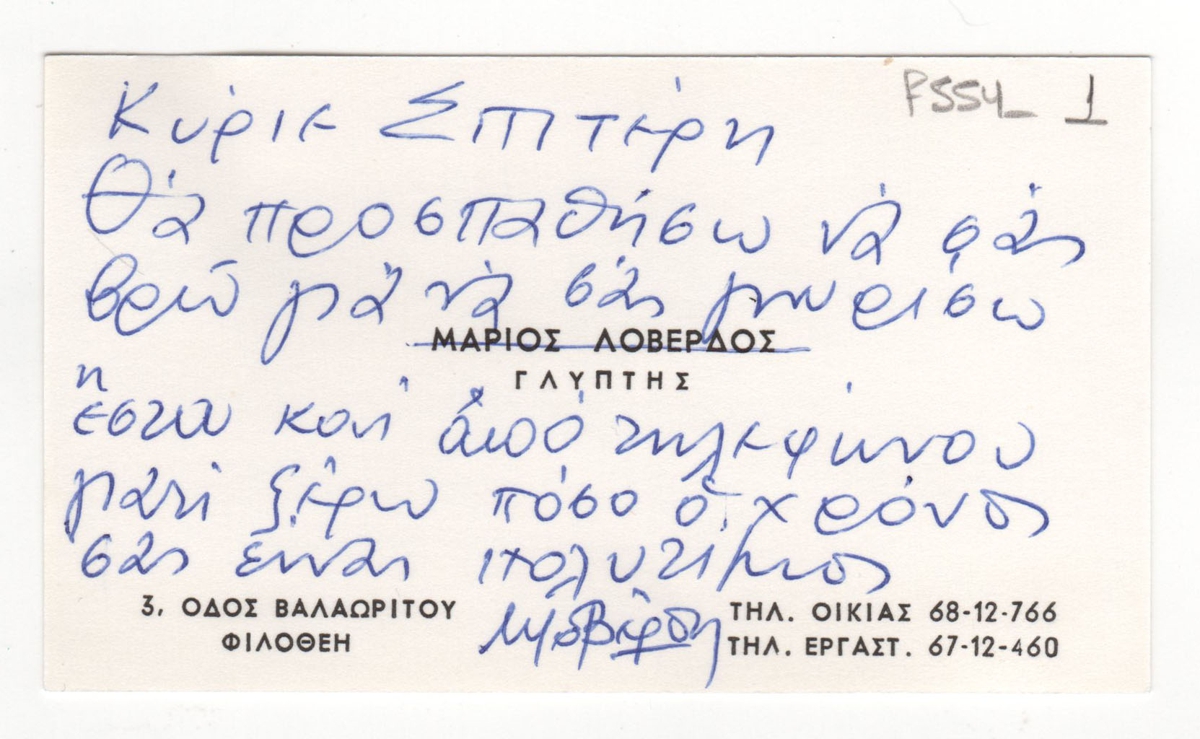 F554_ 1
Κύριε Σπιτέρη
Θά προσπαθήσω νά σάς
βρώ γιά νά σάς γνωρίσω
ΜΑΡΙΟΣ ΛΟΒΕΡΔΟΣ
ΓΛΥΠΤΗΣ
η
έστω και από τηλεφώνου
γιατί ξέρω πόσο ο χρόνος
σάς είναι πολύτιμος
3, ΟΔΟΣ ΒΑΛΑΩΡΙΤΟΥ
ΦΙΛΟΘΕΗ
ΤΗΛ. ΟΙΚΙΑΣ 68-12-766
ΤΗΛ. ΕΡΓΑΣΤ. 67-12-460